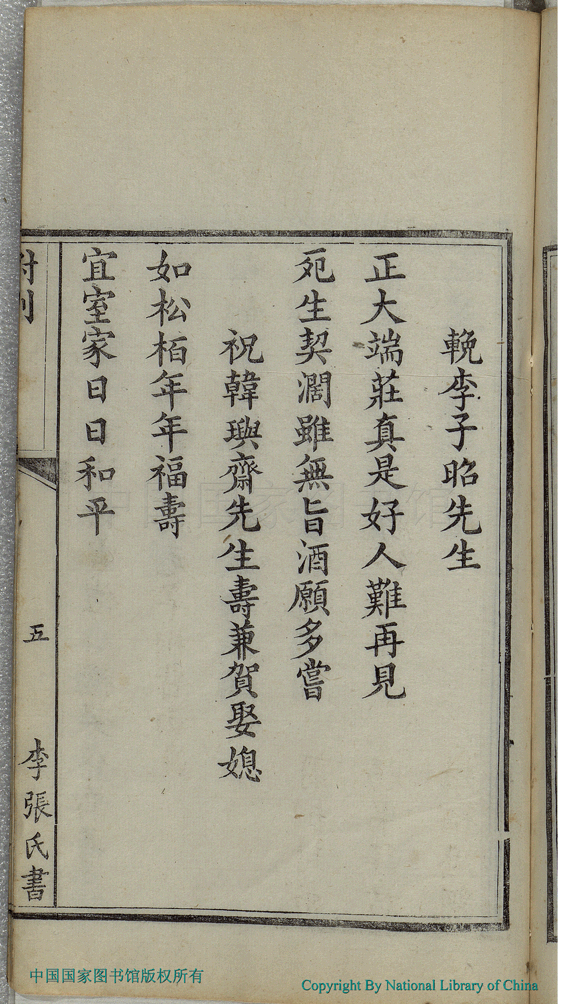 輓李子昭先生
正大端莊真是好人難再見
死生契濶雖無旨酒願多嘗
祝韓璵齋先生壽兼賀娶媳
如松栢年年福壽
宜室家日日和平
附刊
五
李張氏書
中国国家图书馆
中国国家图书馆版权所有
Copyright By National Library of China